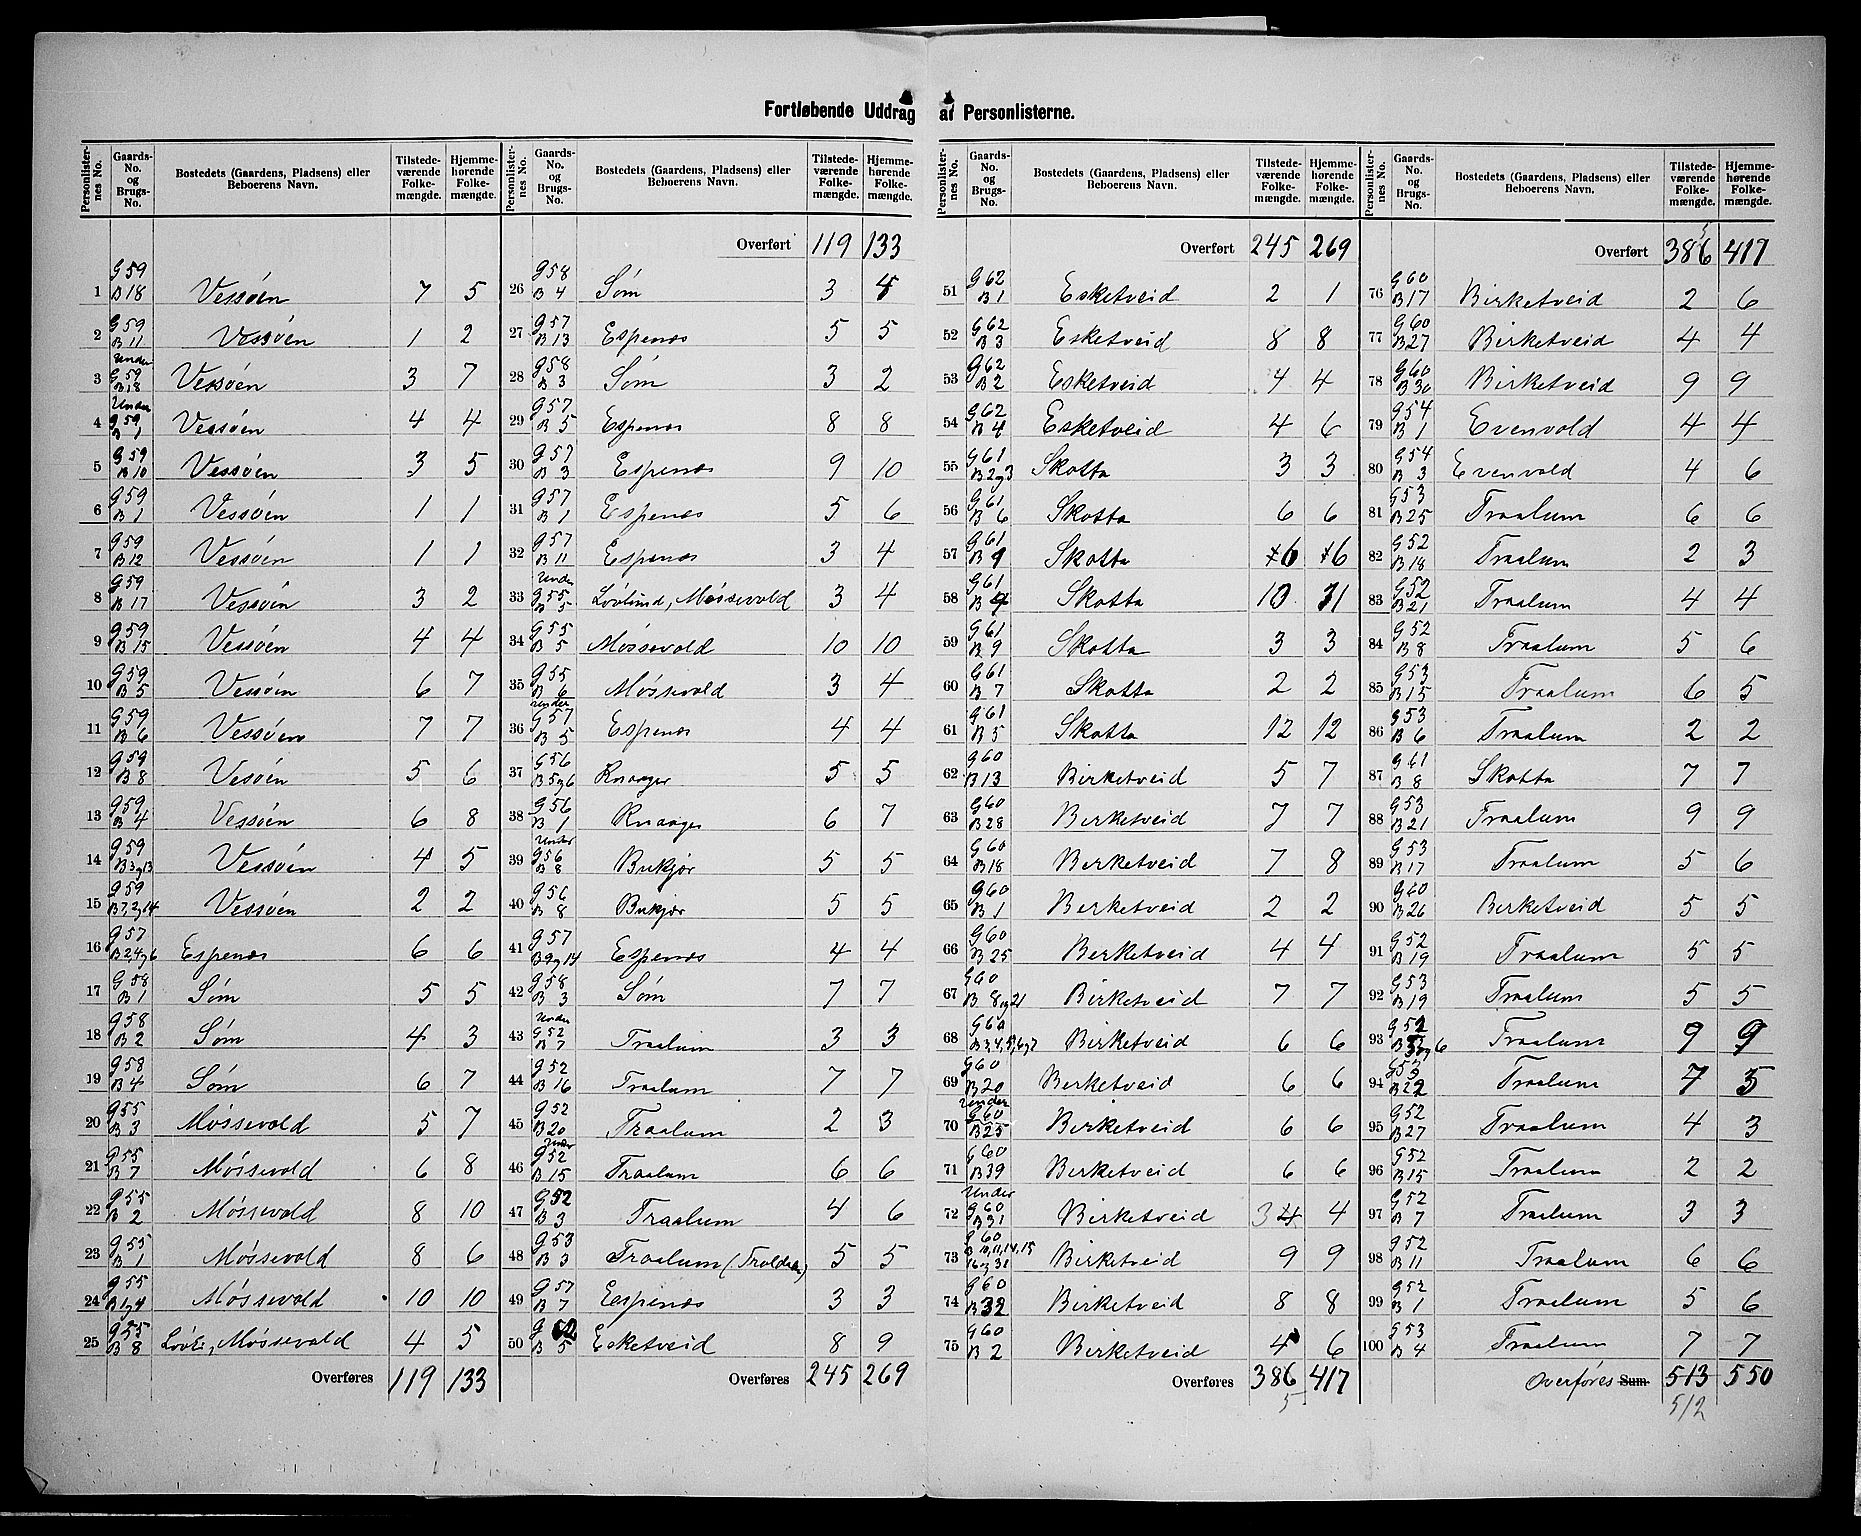 Fortløbende Uddrag af Personlisterne.
Personlisternes No. | Gaards-No. og Brugs-No. | Bostedets (Gaardens, Pladsens) eller Beboerens Navn. | Tilstedeværende Folkemængde. | Hjemmehørende Folkemængde.
1 | G 59 B 18 | Vessøen | 7 | 5
2 | G 59 B 11 | Vessøen | 1 | 2
3 | Under G 59 B 18 | Vessøen | 3 | 7
4 | Under G 59 B 1 | Vessøen | 4 | 4
5 | G 59 B 10 | Vessøen | 3 | 5
6 | G 59 B 1 | Vessøen | 1 | 1
7 | G 59 B 12 | Vessøen | 1 | 1
8 | G 59 B 17 | Vessøen | 3 | 2
9 | G 59 B 15 | Vessøen | 4 | 4
10 | G 59 B 5 | Vessøen | 6 | 7
11 | G 59 B 6 | Vessøen | 7 | 7
12 | G 59 B 8 | Vessøen | 5 | 6
13 | G 59 B 4 | Vessøen | 6 | 8
14 | G 59 B 3 og 13 | Vessøen | 4 | 5
15 | G 59 B 7, 2 og 14 | Vessøen | 2 | 2
16 | G 57 B 2, 4 og 6 | Espenæs | 6 | 6
17 | G 58 B 1 | Søm | 5 | 5
18 | G 58 B 2 | Søm | 4 | 3
19 | G 58 B 4 | Søm | 6 | 7
20 | G 55 B 3 | Møssevold | 5 | 7
21 | G 55 B 7 | Møssevold | 6 | 8
22 | G 55 B 2 | Møssevold | 8 | 10
23 | G 55 B 1 | Møssevold | 8 | 6
24 | G 55 B 1 og 4 | Møssevold | 10 | 10
25 | G 55 B 8 | Møssevold | 4 | 5
Overføres | 119 | 133
Personlisternes No. | Gaards-No. og Brugs-No. | Bostedets (Gaardens, Pladsens) eller Beboerens Navn. | Tilstedeværende Folkemængde. | Hjemmehørende Folkemængde.
Overført | 119 | 133
26 | G 58 B 4 | Søm | 3 | 4
27 | G 57 B 13 | Espenæs | 5 | 5
28 | G 58 B 3 | Søm | 3 | 2
29 | G 57 B 5 | Espenæs | 8 | 8
30 | G 57 B 3 | Espenæs | 9 | 10
31 | G 57 B 1 | Espenæs | 5 | 6
32 | G 57 B 11 | Espenæs | 3 | 4
33 | Under G 55 B 5 | Løvlund, Møssevold | 3 | 4
34 | G 55 B 5 | Møssevold | 10 | 10
35 | G 55 B 6 | Møssevold | 3 | 4
36 | Under G 57 B 5 | Espenæs | 4 | 4
37 | G 56 B 5 og 6 | Rnaager | 5 | 5
38 | G 56 B 1 | Rnaager | 6 | 7
39 | Under G 56 B 8 | Bukjør | 5 | 5
40 | G 56 B 8 | Bukjør | 5 | 5
41 | G 57 B 9 og 14 | Espenæs | 4 | 4
42 | G 58 B 3 | Søm | 7 | 7
43 | Under G 52 B 7 | Traalum | 3 | 3
44 | G 52 B 16 | Traalum | 7 | 7
45 | G 52 B 20 | Traalum | 2 | 3
46 | Under G 52 B 15 | Traalum | 6 | 6
47 | G 52 B 3 | Traalum | 4 | 6
48 | G 53 B 3 | Traalum | 5 | 5
49 | G 57 B 7 | Eespenæs | 3 | 3
50 | G 62 B 5 | Esketveid | 8 | 9
Overføres | 245 | 269
Personlisternes No. | Gaards-No. og Brugs-No. | Bostedets (Gaardens, Pladsens) eller Beboerens Navn. | Tilstedeværende Folkemængde. | Hjemmehørende Folkemængde.
Overført | 245 | 269
51 | G 62 B 1 | Esketveid | 2 | 1
52 | G 62 B 3 | Esketveid | 8 | 8
53 | G 62 B 2 | Esketveid | 4 | 4
54 | G 62 B 4 | Esketveid | 4 | 6
55 | G 61 B 2 og 3 | Skotta | 3 | 3
56 | G 61 B 6 | Skotta | 6 | 6
57 | G 61 B 1 | Skotta | 6 | 6
58 | G 61 B 4 | Skotta | 10 | 11
59 | G 61 B 9 | Skotta | 3 | 3
60 | G 61 B 7 | Skotta | 2 | 2
61 | G 61 B 5 | Skotta | 12 | 12
62 | G 60 B 13 | Birketveid | 5 | 7
63 | G 60 B 28 | Birketveid | 7 | 7
64 | G 60 B 18 | Birketveid | 7 | 8
65 | G 60 B 1 | Birketveid | 2 | 2
66 | G 60 B 25 | Birketveid | 4 | 4
67 | G 60 B 8 og 21 | Birketveid | 7 | 7
68 | G 60 B 3, 4, 5, 6 og 7 | Birketveid | 6 | 6
69 | G 60 B 20 | Birketveid | 6 | 6
70 | Under G 60 B 25 | Birketveid | 6 | 6
71 | G 60 B 39 | Birketveid | 6 | 6
72 | Under G 60 B 31 | Birketveid | 3 4 | 4
73 | G 60 B 10, 11, 14, 15 16 og 38 | Birketveid | 9 | 9
74 | G 60 B 32 | Birketveid | 8 | 8
75 | G 60 B 2 | Birketveid | 4 | 6
Overføres | 386 | 417
5
Personlisternes No. | Gaards-No. og Brugs-No. | Bostedets (Gaardens, Pladsens) eller Beboerens Navn. | Tilstedeværende Folkemængde. | Hjemmehørende Folkemængde.
5
Overført | 386 | 417
76 | G 60 B 17 | Birketveid | 2 | 6
77 | G 60 B 27 | Birketveid | 4 | 4
78 | G 60 B 30 | Birketveid | 9 | 9
79 | G 54 B 1 | Evenvold | 4 | 4
80 | G 54 B 3 | Evenvold | 4 | 6
81 | G 53 B 25 | Traalum | 6 | 6
82 | G 52 B 18 | Traalum | 2 | 3
83 | G 52 B 21 | Traalum | 4 | 4
84 | G 52 B 8 | Traalum | 5 | 6
85 | G 53 B 15 | Traalum | 6 | 5
86 | G 53 B 6 | Traalum | 2 | 2
87 | G 61 B 8 | Skotta | 7 | 7
88 | G 53 B 21 | Traalum | 9 | 9
89 | G 53 B 17 | Traalum | 5 | 6
90 | G 60 B 26 | Birketveid | 5 | 5
91 | G 52 B 19 | Traalum | 5 | 5
92 | G 53 B 19 | Traalum | 5 | 5
93 | G 52 B 5 og 6 | Traalum | 9 | 9
94 | G 53 B 22 | Traalum | 7 | 5
95 | G 52 B 27 | Traalum | 4 | 3
96 | G 52 B 15 | Traalum | 2 | 2
97 | G 52 B 7 | Traalum | 3 | 3
98 | G 52 B 11 | Traalum | 6 | 6
99 | G 52 B 1 | Traalum | 5 | 6
100 | G 53 B 4 | Traalum | 7 | 7
Overføres Sum | 513 | 550
512